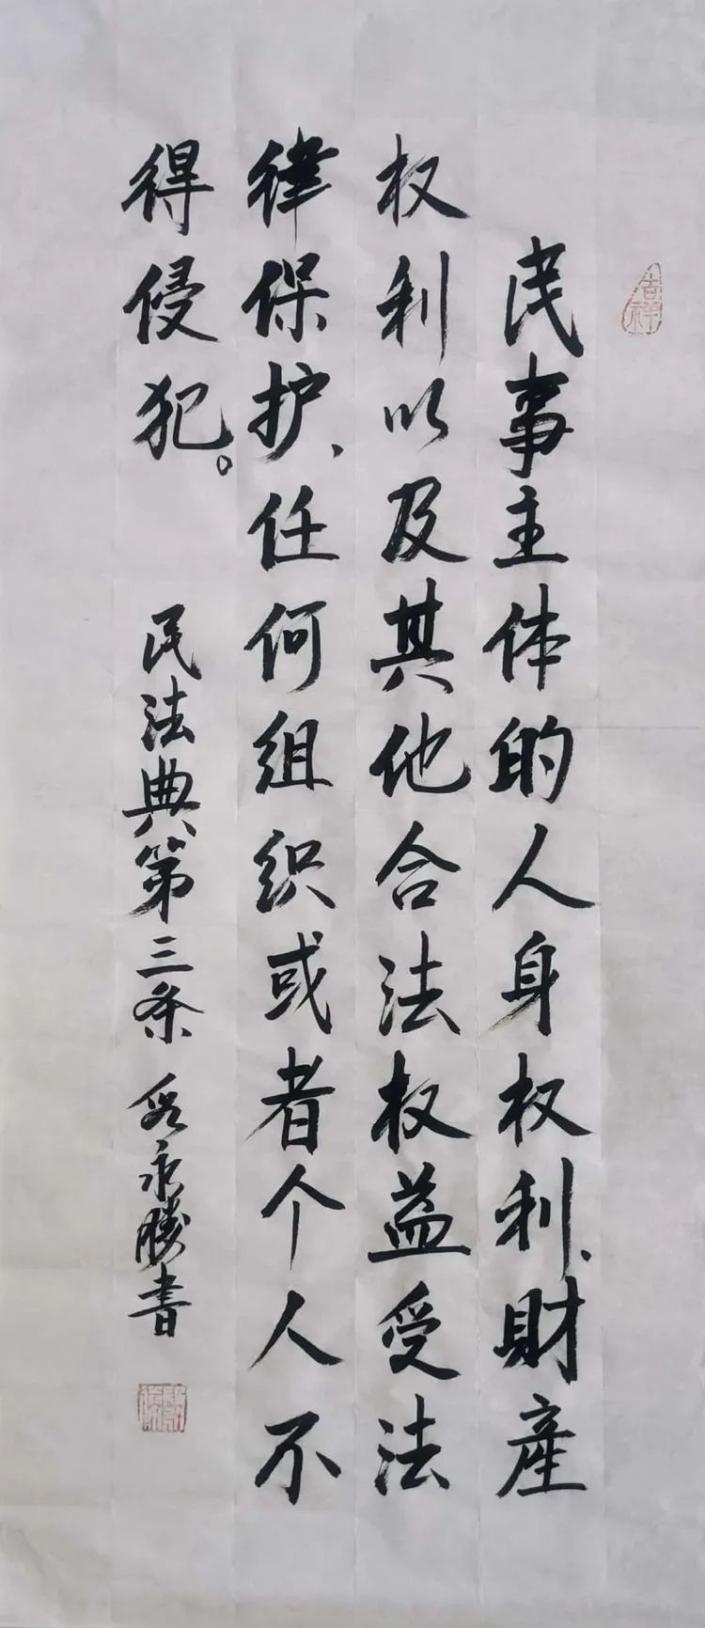 民事主体的人身权利、財產
权利以及其他合法权益受法
律保护、任何组织或者个人不
得侵犯。
民法典第三条 永勝書
吉祥